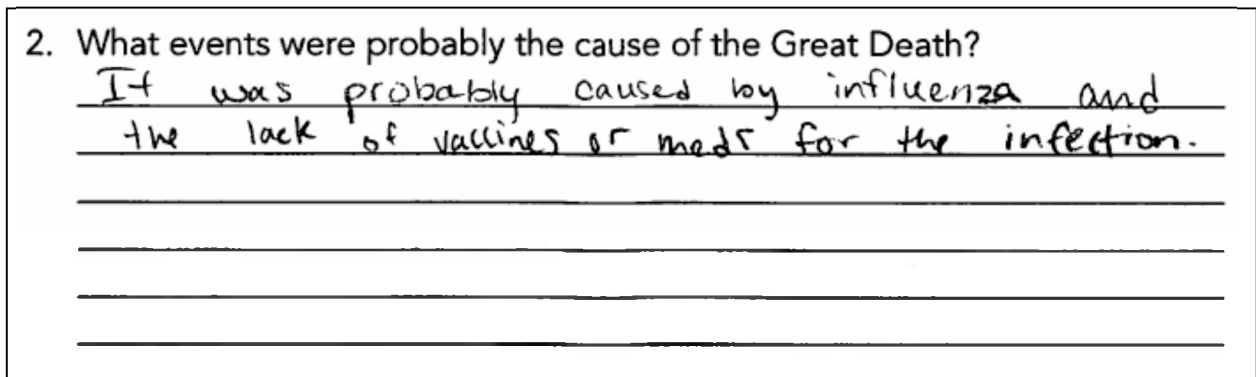 2. What events were probably the cause of the Great Death?
It was probably caused by influenza and
the lack of vaccines or meds for the infection.